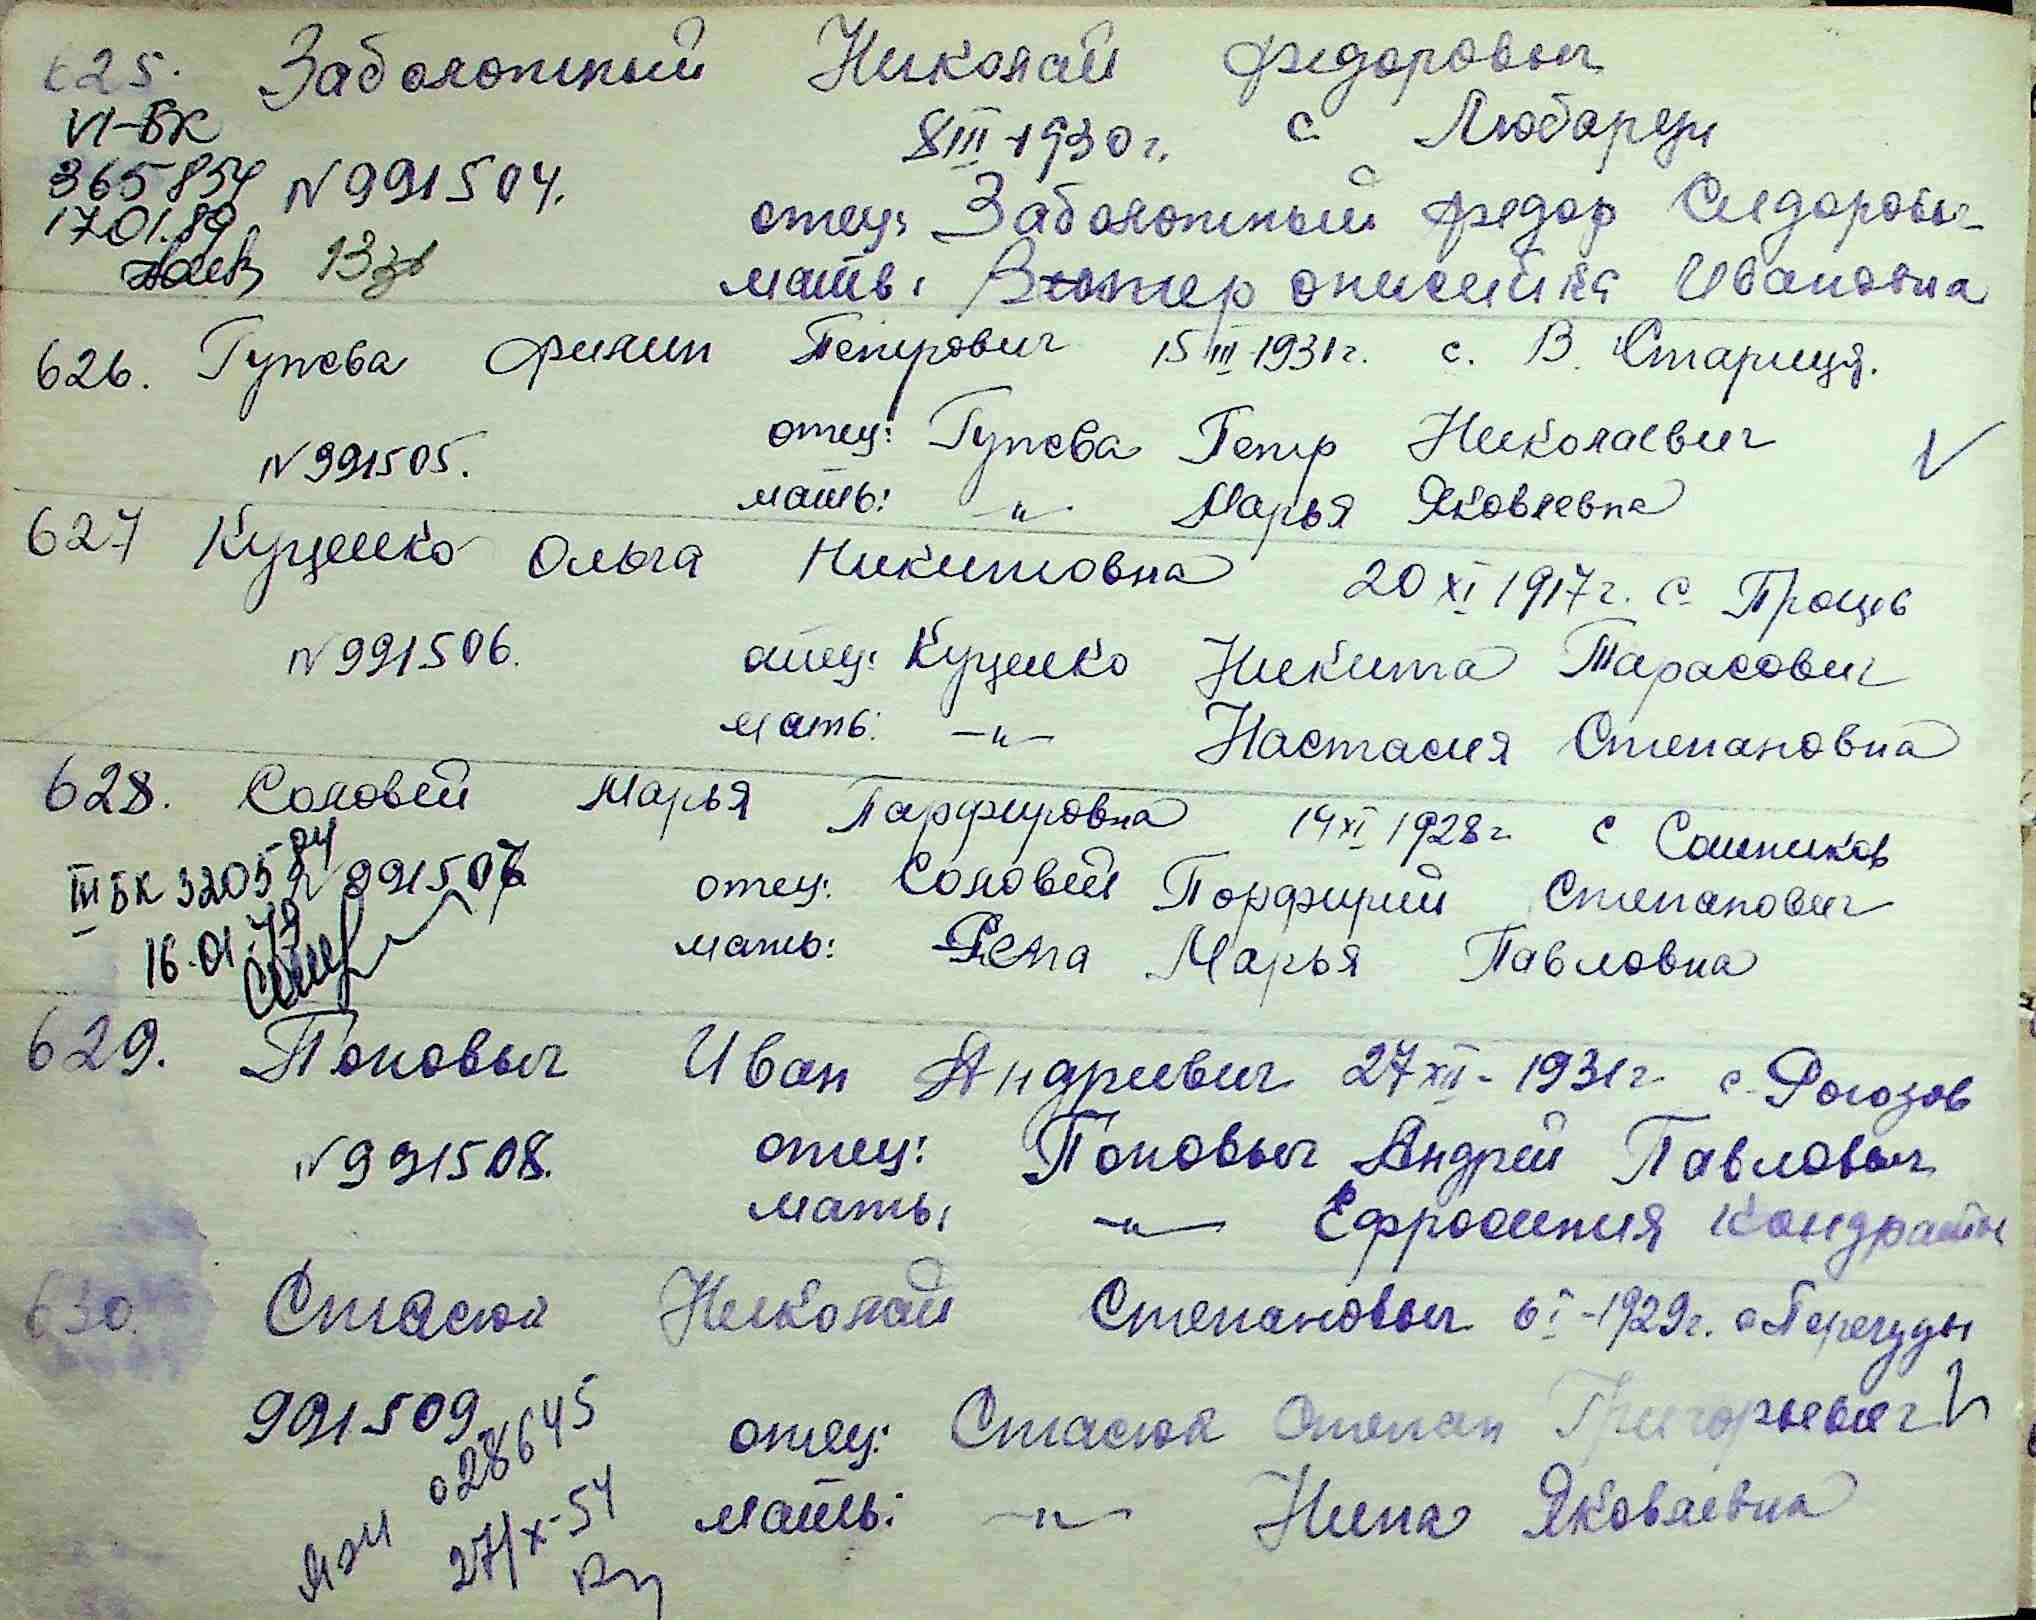 625. Заболотный Николай Федоровыч
VI-БК 8 III-1930 г. с. Любарцы
365854 N 991504.
17.01.89 отец: Заболотный Федор Сидоровы-
13
мать: Онисийка Ивановна
626. Гужева Филип Петрович 15 III 1931 г. с. В. Стариця.
отец: Гужева Петр Николаевич
N 991505.
мать: -"- Марья Яковлевна
627 Куценко Ольга Никитовна 20 XI 1917 г. с. Процев
N 991506. отец: Куценко Никита Тарасович
мать: -"- Настасия Степановна
628. Соловей Марья Парфировна 14 XI 1928 г. с Сошников
III БК 320584 N 991507 отец: Соловей Порфирий Степанович
16.01.79 мать: Репа Марья Павловна
629. Поповыч Иван Андриевич 27 XII-1931 г с. Рогозов
N 991508. отец: Поповыч Андрей Павловыч
мать: -"- Ефросиния Кондраты
630. Стасюк Николай Степановыч 6 I-1929 г. с Перегуды
991509. отец: Стасюк Степан Григорьевич
028645
27/X-54 мать: -"- Нина Яковлевна